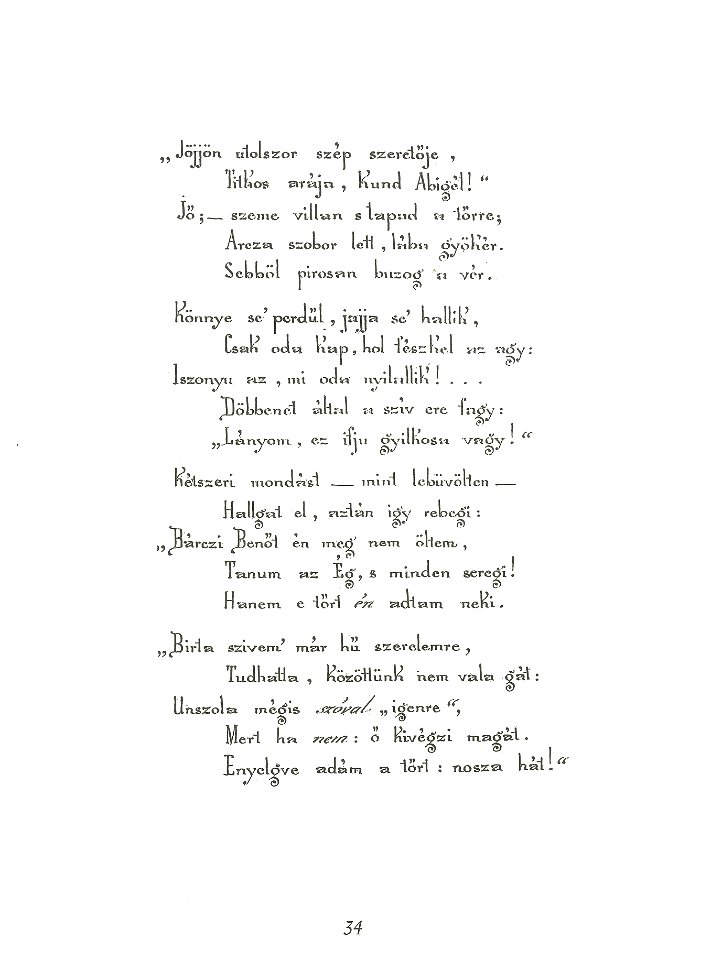 „Jöjjön utolszor szép szeretője ,
Titkos arája , Kund Abigél! “
Jő ; — szeme villan s tapad a tőrre;
Arcza szobor lett , lába gyökér.
Sebből pirosan buzog a vér.
Könnye se’ perdül , jajja se’ hallik ,
Csak oda kap , hol fészkel az agy :
Iszonyu az , mi oda nyilallik ! . . .
Döbbenet által a szív ere fagy :
„Lányom , ez ifju gyilkosa vagy ! “
Kétszeri mondást — mint lebüvölten —
Hallgat el , aztán igy rebegi :
„Bárczi Benőt én meg nem öltem ,
Tanum az Ég , s minden seregi !
Hanem e tőrt én adtam neki .
„Birta szivem’ már hű szerelemre ,
Tudhatta , közöttünk nem vala gát :
Unszola mégis szóval „igenre “,
Mert ha nem : ő kivégzi magát .
Enyelgve adám a tőrt : nosza hát! “
34